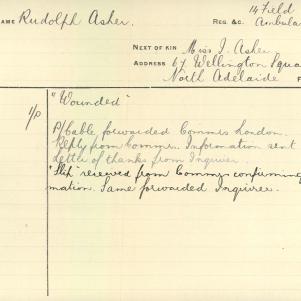 NAME Rudolph Asher. REG. &C. 14 Field
Ambula
NEXT OF KIN Miss J. Asher
ADDRESS 67 Wellington Squa
North Adelaide
"Wounded"
P/Cable forwarded Commrs London.
Reply from Commrs. Information sent
Letter of thanks from Inquirer.
"Slip" received from Commrs confirming
mation. Same forwarded Inquirer.